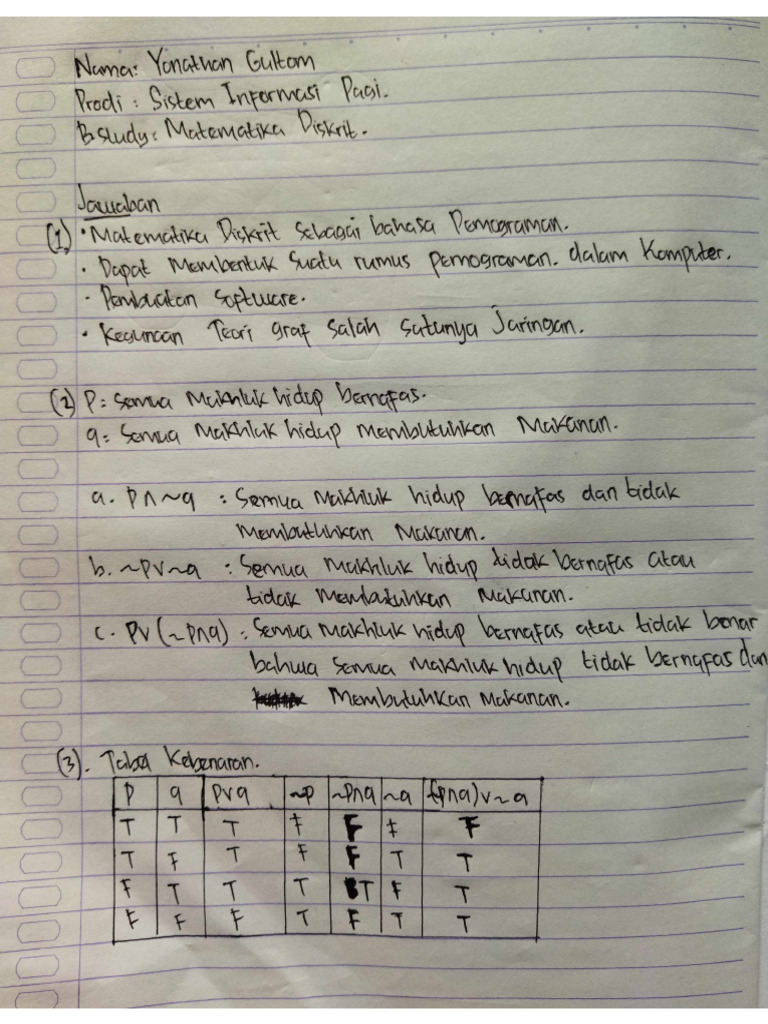 Nama: Yonathan Gultom
Prodi : Sistem Informasi Pagi.
B.study: Matematika Diskrit.
Jawaban
(1) • Matematika Diskrit sebagai bahasa Pemograman.
• Dapat Membentuk Suatu rumus pemograman. dalam Komputer.
- Pembuatan Software.
• Kegunaan Teori graf salah satunya Jaringan.
(2) P = Semua Makhluk hidup bernafas.
q = Semua Makhluk hidup membutuhkan Makanan.
a. p ∧ ~q : Semua Makhluk hidup bernafas dan tidak
Membutuhkan Makanan.
b. ~p ∨ ~q : Semua Makhluk hidup tidak bernafas atau
tidak Membutuhkan Makanan.
c. p ∨ (~p ∧ q) : Semua Makhluk hidup bernafas atau tidak benar
bahwa semua makhluk hidup tidak bernafas dan
Membutuhkan Makanan.
(3). Tabel Kebenaran.
P q p∨q ~p ~p∧q ~q (~p∧q)∨~q
T T T F F F F
T F T F F T T
F T T T T F T
F F F T F T T